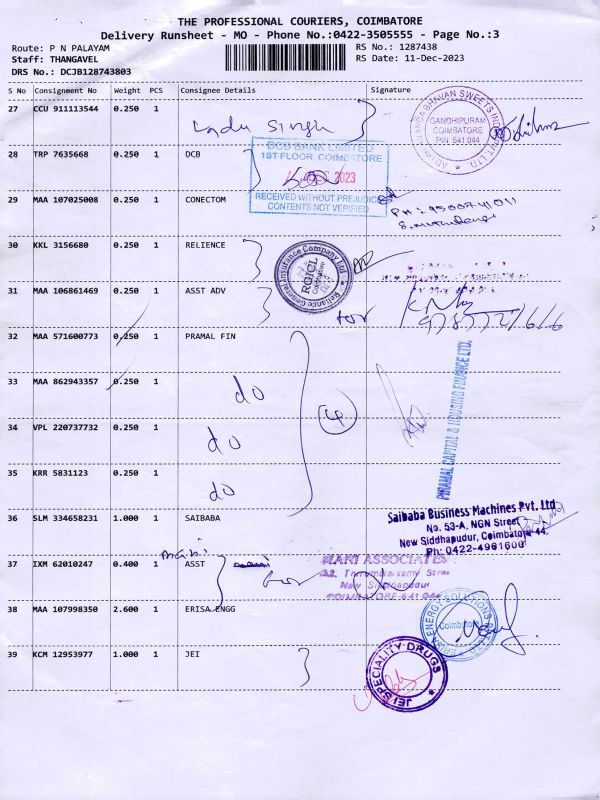 THE PROFESSIONAL COURIERS, COIMBATORE
Delivery Runsheet - MO - Phone No.:0422-3505555 - Page No.:3
Route: P N PALAYAM
RS No.: 1287438
Staff: THANGAVEL
RS Date: 11-Dec-2023
DRS No.: DCJB128743803
S No Consignment No Weight PCS Consignee Details Signature
27 CCU 911113544 0.250 1
Ladu Singh
BHAVAN SWEETS
GANDHIPURAM
COIMBATORE
PIN: 641 044
28 TRP 7635668 0.250 1 DCB
DCB BANK LIMITED
1ST FLOOR, COIMBATORE
2023
RECEIVED WITHOUT PREJUDICE
CONTENTS NOT VERIFIED
29 MAA 107025008 0.250 1 CONECTOM
30 KKL 3156680 0.250 1 RELIENCE
Reliance General Insurance Company Ltd
RGICL
Coimbatore
31 MAA 106861469 0.250 1 ASST ADV
for
32 MAA 571600773 0.250 1 PRAMAL FIN
33 MAA 862943357 0.250 1
do
4
34 VPL 220737732 0.250 1
do
35 KRR 5831123 0.250 1
do
PIRAMAL CAPITAL & HOUSING FINANCE LTD.
36 SLM 334658231 1.000 1 SAIBABA
Saibaba Business Machines Pvt. Ltd
No. 53-A, NGN Street
New Siddhapudur, Coimbatore-44.
Ph: 0422-4981600
37 IXM 62010247 0.400 1 mani ASST
for
MANI ASSOCIATES
New Siddhapudur
COIMBATORE-641 044
38 MAA 107998350 2.600 1 ERISA ENGG
ENERGY SOLUTIONS
Coimbatore
39 KCM 12953977 1.000 1 JEI
JEI SPECIALITY DRUGS